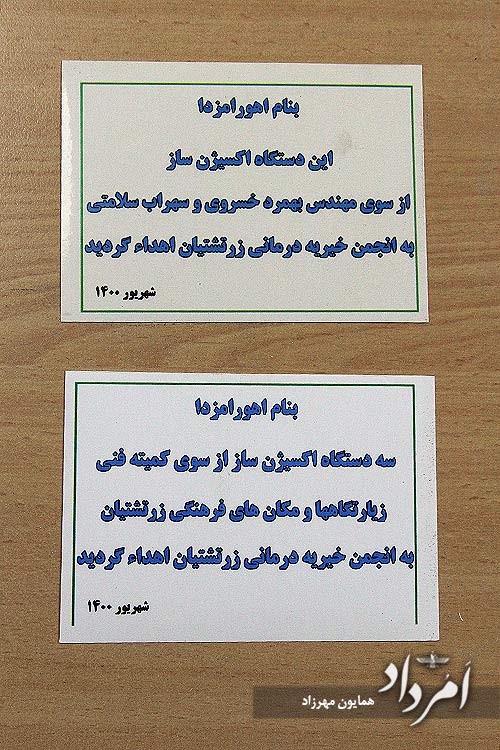 بنام اهورامزدا
این دستگاه اکسیژن ساز
از سوی مهندس بهمرد خسروی و سهراب سلامتی
به انجمن خیریه درمانی زرتشتیان اهداء گردید
شهریور ۱۴۰۰
بنام اهورامزدا
سه دستگاه اکسیژن ساز از سوی کمیته فنی
زیارتگاهها و مکان های فرهنگی زرتشتیان
به انجمن خیریه درمانی زرتشتیان اهداء گردید
شهریور ۱۴۰۰
اَمُرداد
همایون مهرزاد